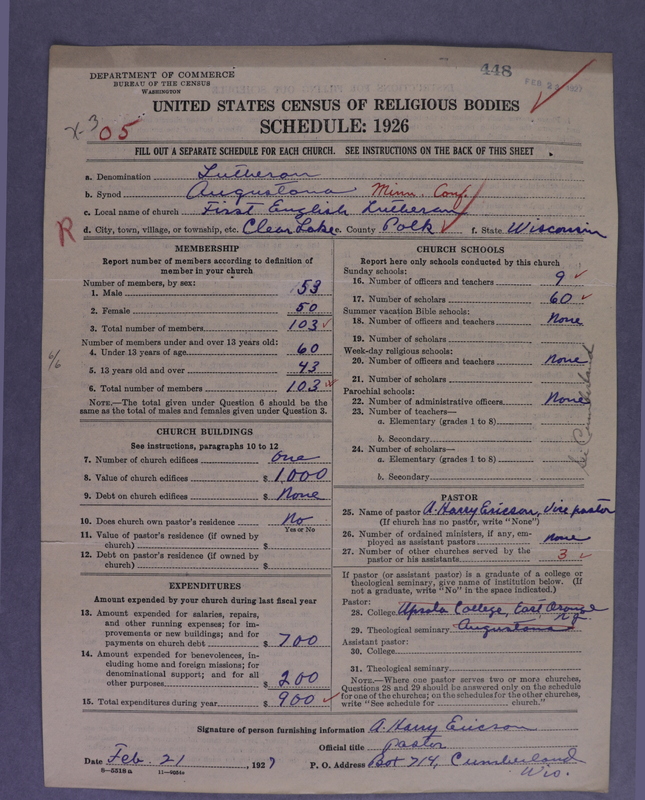 448
FEB 23 1927
DEPARTMENT OF COMMERCE
BUREAU OF THE CENSUS
WASHINGTON
UNITED STATES CENSUS OF RELIGIOUS BODIES
SCHEDULE: 1926
x-3 05
FILL OUT A SEPARATE SCHEDULE FOR EACH CHURCH. SEE INSTRUCTIONS ON THE BACK OF THIS SHEET
a. Denomination Lutheran
b. Synod Augustana Minn. Conf.
c. Local name of church First English Lutheran
R
d. City, town, village, or township, etc. Clear Lake e. County Polk f. State Wisconsin
MEMBERSHIP
Report number of members according to definition of
member in your church
Number of members, by sex:
1. Male 53
2. Female 50
3. Total number of members 103
Number of members under and over 13 years old:
4. Under 13 years of age 60
5. 13 years old and over 43
6. Total number of members 103
NOTE.—The total given under Question 6 should be the
same as the total of males and females given under Question 3.
6/6
CHURCH BUILDINGS
See instructions, paragraphs 10 to 12
7. Number of church edifices One
8. Value of church edifices $ 1,000
9. Debt on church edifices $ None
10. Does church own pastor's residence No
Yes or No
11. Value of pastor's residence (if owned by
church) $
12. Debt on pastor's residence (if owned by
church) $
EXPENDITURES
Amount expended by your church during last fiscal year
13. Amount expended for salaries, repairs,
and other running expenses; for im-
provements or new buildings; and for
payments on church debt $ 700
14. Amount expended for benevolences, in-
cluding home and foreign missions; for
denominational support; and for all
other purposes $ 200
15. Total expenditures during year $ 900
CHURCH SCHOOLS
Report here only schools conducted by this church
Sunday schools:
16. Number of officers and teachers 9
17. Number of scholars 60
Summer vacation Bible schools:
18. Number of officers and teachers None
19. Number of scholars
Week-day religious schools:
20. Number of officers and teachers None
21. Number of scholars
Parochial schools:
22. Number of administrative officers None
23. Number of teachers—
a. Elementary (grades 1 to 8)
b. Secondary
24. Number of scholars—
a. Elementary (grades 1 to 8)
b. Secondary
See Cumberland
PASTOR
25. Name of pastor A. Harry Ericson, Vice pastor
(If church has no pastor, write "None")
26. Number of ordained ministers, if any, em-
ployed as assistant pastors None
27. Number of other churches served by the
pastor or his assistants 3
If pastor (or assistant pastor) is a graduate of a college or
theological seminary, give name of institution below. (If
not a graduate, write "No" in the space indicated.)
Pastor:
28. College Upsala College, East Orange
N.J.
29. Theological seminary Augustana
Assistant pastor:
30. College
31. Theological seminary
NOTE.—Where one pastor serves two or more churches,
Questions 28 and 29 should be answered only on the schedule
for one of the churches; on the schedules for the other churches,
write "See schedule for church."
Signature of person furnishing information A. Harry Ericson
Official title pastor
Date Feb. 21, 1927 P. O. Address Box 714, Cumberland
Wis.
8—5518 a 11—9034